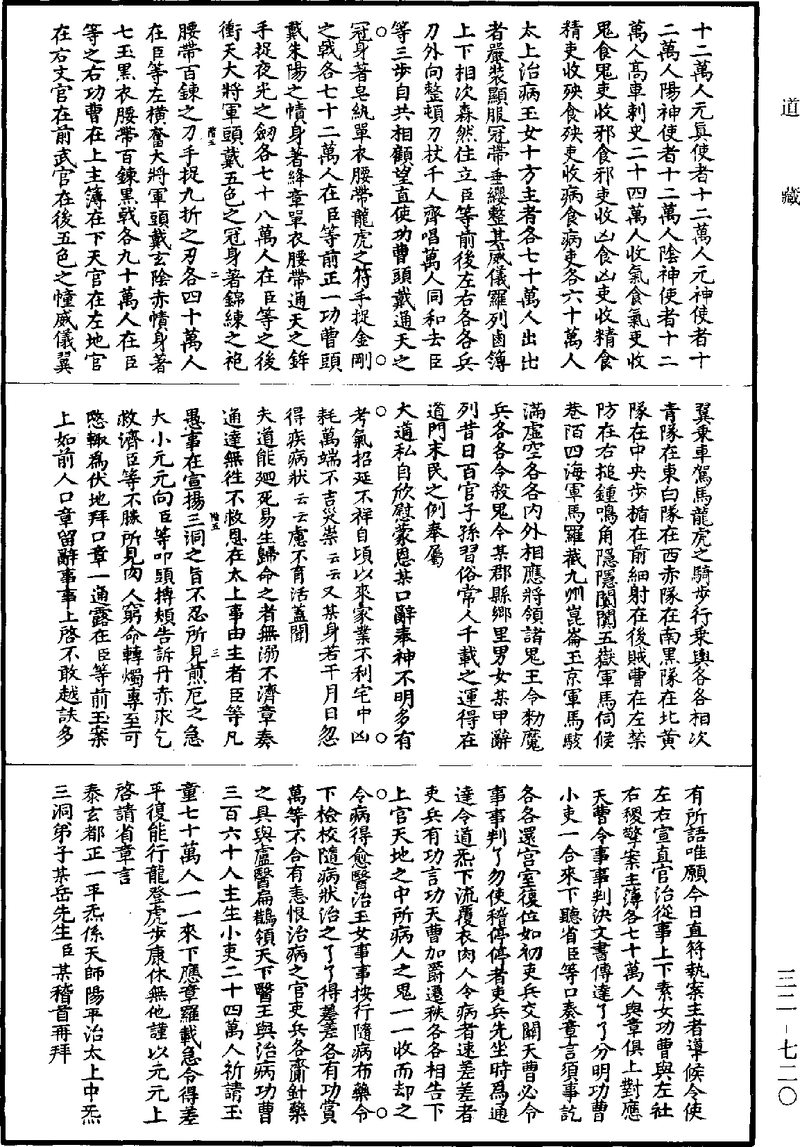 道藏
十二萬人元眞使者十二萬人元神使者十
二萬人陽神使者十二萬人陰神使者十二
萬人高車刺史二十四萬人收氣食氣吏收
鬼食鬼吏收邪食邪吏收凶食凶吏收精食
精吏收殃食殃吏收病食病吏各六十萬人
太上治病玉女十方主者各七十萬人出比
者嚴裝顯服冠帶垂纓整其威儀羅列鹵簿
上下相次森然住立臣等前後左右各各兵
刀外向整頓刀杖千人齊唱萬人同和去臣
等三步自共相顧望直使功曹頭戴通天之
冠身著皂紈單衣腰帶龍虎之符手捉金剛
之戟各七十二萬人在臣等前正一功曹頭
戴朱陽之幘身著絳章單衣腰帶通天之鉾
手捉夜光之劒各七十八萬人在臣等之後
衝天大將軍頭戴五色之冠身著錦練之袍
腰帶百鍊之刀手捉九折之刃各四十萬人
在臣等左橫奮大將軍頭戴玄陰赤幘身著
七玉黑衣腰帶百鍊黑戟各九十萬人在臣
等之右功曹在上主簿在下天官在左地官
在右文官在前武官在後五色之幢威儀翼
翼乗車駕馬龍虎之騎步行乗輿各各相次
青隊在東白隊在西赤隊在南黑隊在北黃
隊在中央步楯在前細射在後賊曹在左禁
防在右搥鍾鳴角隱隱闐闐五嶽軍馬伺候
巷陌四海軍馬羅截九州崑崙玉京軍馬駭
滿虛空各各内外相應將領諸鬼王令勑魔
兵各各令殺鬼令某郡縣鄉里男女某甲辭
列昔日百官子孫習俗常人千載之運得在
道門末民之例奉屬
大道私自欣慰蒙恩某口辭奉神不明多有
考氣招延不祥自頃以來家業不利宅中凶
耗萬端不吉災祟云云又某身若干月日忽
得疾病狀云云慮不育活蓋聞
夫道能迴死易生歸命之者無溺不濟章奏
通達無徃不救恩在太上事由主者臣等凡
愚事在宣揚三洞之旨不忍所見煎厄之急
大小元元向臣等叩頭搏頰告訴丹赤求乞
救濟臣等不勝所見肉人窮命轉燭專至可
愍輒爲伏地拜口章一通露在臣等前玉案
上如前人口章留辭事事上啓不敢越訣多
有所語唯願今日直符執案主者導候令使
左右宣直官治從事上下素女功曹與左社
右稷擎案主薄各七十萬人與章俱上對應
天曹令事事判決文書傳達了了分明功曹
小吏一合來下聽省臣等口奏章言須事訖
各各還宮室復位如初吏兵交關天曹必令
事事判了勿使稽停停者吏兵先坐時爲通
達令道炁下流覆衣肉人令病者速差差者
吏兵有功言功天曹加爵遷秩各各相告下
上官天地之中所病人之鬼一一收而却之
令病得愈醫治玉女事事按行隨病布藥令
下檢校隨病狀治之了了得差差各有功賞
萬等不合有恚恨治病之官吏兵各齎針藥
之具與盧醫扁鵲領天下醫王與治病功曹
三百六十人主生小吏二十四萬人祈請玉
童七十萬人一一來下應章羅載急令得差
平復能行龍登虎步康休無他謹以元元上
啓請省章言
泰玄都正一平炁係天師陽平治太上中炁
三洞弟子某岳先生臣某稽首再拜
階五
二
階五
三
三二-七二〇